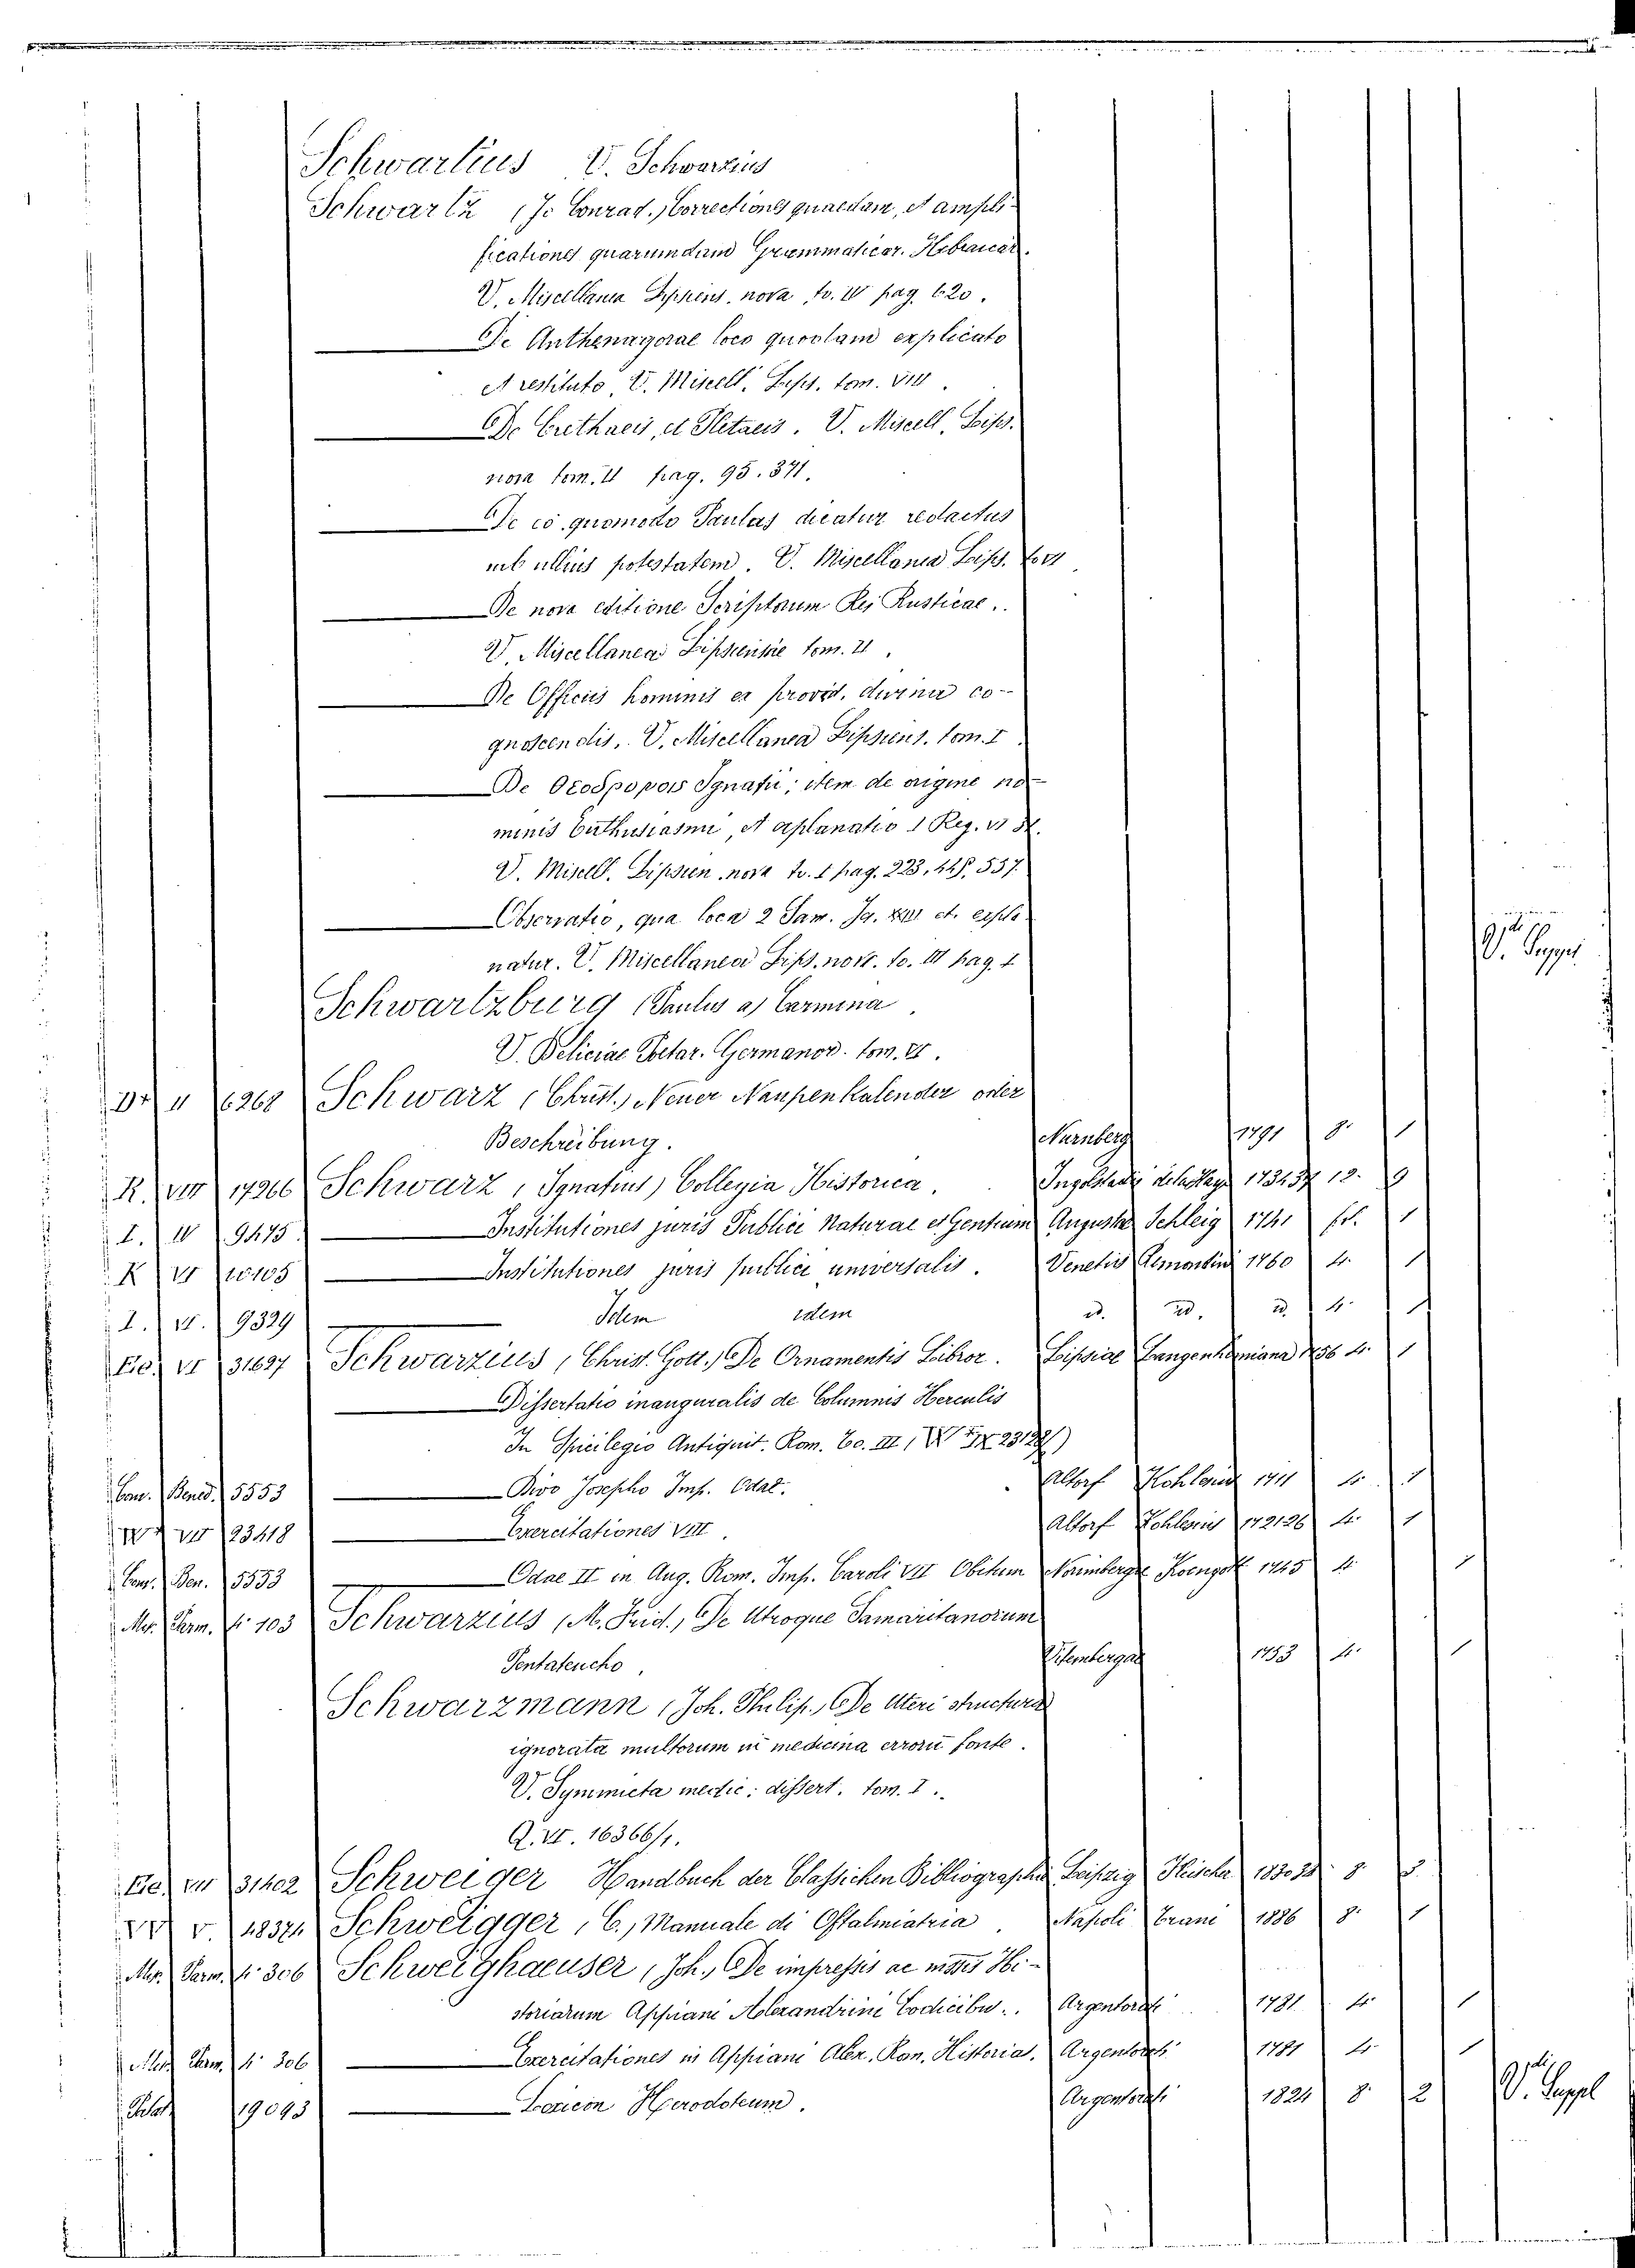 Schwartius V. Schwarzius
Schwartz (Jo Conrad.) Correctiones quaedam, et ampli-
ficationes quarumdam Grammaticor. Hebraicar.
V. Miscellanea Lipsiens. nova, to. IV pag. 620.
De Anthenagorae loco quodam explicato
et restituto, V. Miscell. Lips. tom. VIII.
De Crethaeis, et Pletaeis. V. Miscell. Lips.
nova tom. II pag. 95. 371.
De eo quomodo Paulus dicatur redactus
sub ullius potestatem. V. Miscellanea Lips. to VI
De nova editione Scriptorum Rei Rusticae.
V. Miscellanea Lipsiensie tom. II.
De Officiis hominis ex provid. divina co-
gnoscendis. V. Miscellanea Lipsiens. tom. I.
De Θεοδρομοις Ignatii; item de origine no-
minis Enthusiasmi, et explanatio 1 Reg. VI
V. Miscell. Lipsien nova to. I pag. 223, 445, 557.
Observatio, qua loca 2 Sam. et. expla-
natur. V. Miscellanea Lips. nov. to. III pag. 1
V. Suppl
Schwartzburg (Paulus a) Carmina.
V. Deliciae Poetar. Germanor. tom. VI.
II 6268 Schwarz (Christ.) Neuer Raupenkalender oder
Beschreibung. Nürnberg 1791 8. 1
R. VIII 17266 Schwarz (Ignatius) Collegia Historica. Ingolstadii de la Haye 173437 12. 9
I. IV 9475 Institutiones juris Publici Naturae et Gentium Augustae Schleig 1741 fo. 1
K VI 10105 Institutiones juris publici universalis. Venetiis Remontini 1760 4. 1
I. VI. 9329 Idem idem id. id. id. 4. 1
VI 31697 Schwarzius (Christ. Gott.) De Ornamentis Libror. Lipsiae Langenhemiana 1756 4. 1
Dissertatio inauguralis de Columnis Herculis
In Spicilegio Antiquit. Rom. to. III, (W IX 23122/)
Con. Bened. 5553 Divo Josepho Imp. Odae. Altorf Kohlani 1711 4. 1
W VII 23418 Exercitationes VIII. Altorf Kohlesii 172126 4. 1
Con. Ben. 5553 Odae II in Aug. Rom. Imp. Caroli VII Obitum Norimbergae Koengott 1745 4. 1
Mes. Parm. 4° 103 Schwarzius (M. Frid.) De Utroque Samaritanorum
Pentateucho. Vitembergae 1753 4. 1
Schwarzmann (Joh. Philip.) De Uteri structura
ignorata multorum in medicina errorū fonte.
V. Symmicta medic: dissert. tom. I.
Q. VI. 16366/1.
VII 31402 Schweiger Handbuch der Classichen Bibliographie Leipzig Fleischer 183034 8. 3
V. 48374 Schweigger (C.) Manuale di Oftalmiatria. Napoli Trani 1886 8. 1
Mes. Parm. 4° 306 Schweighaeuser (Joh.) De impressis ac msstis Hi-
storiarum Appiani Alexandrini Codicibus. Argentorati 1781 4. 1
Mes. Parm. 4° 306 Exercitationes in Appiani Alex. Rom. Historias. Argentorati 1781 4. 1
19093 Lexicon Herodoteum. Argentorati 1824 8. 2 V. Suppl